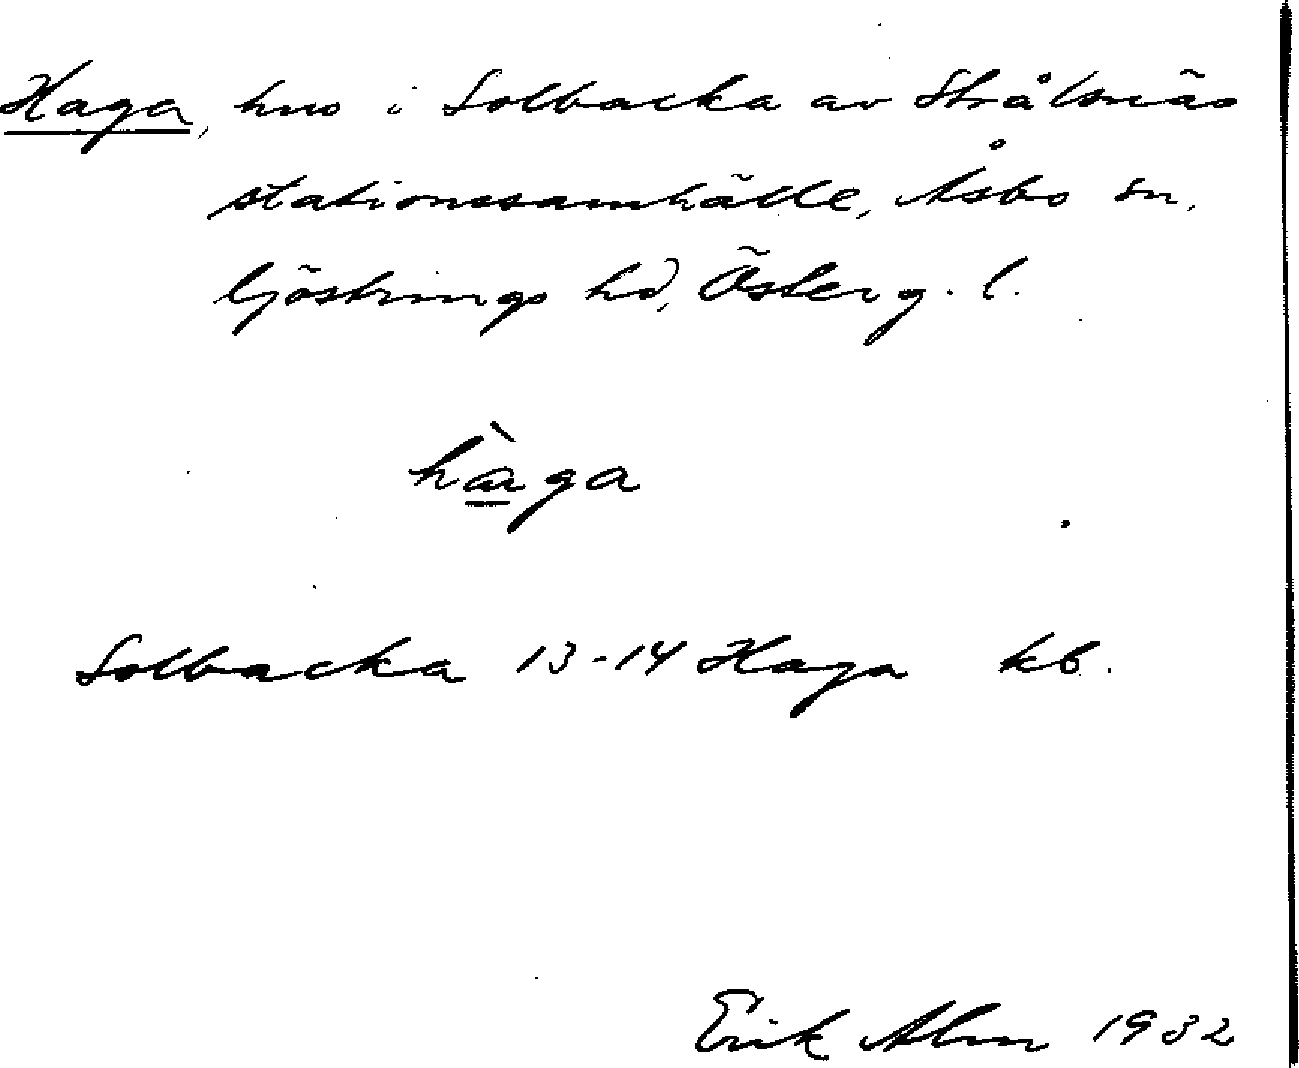 Haga, hus i Solbacka av Strålsnäs
stationssamhälle, Åsbo sn,
Göstrings hd, Österg. l.
hàga
Solbacka 13-14 Haga kb.
Erik Alm 1932